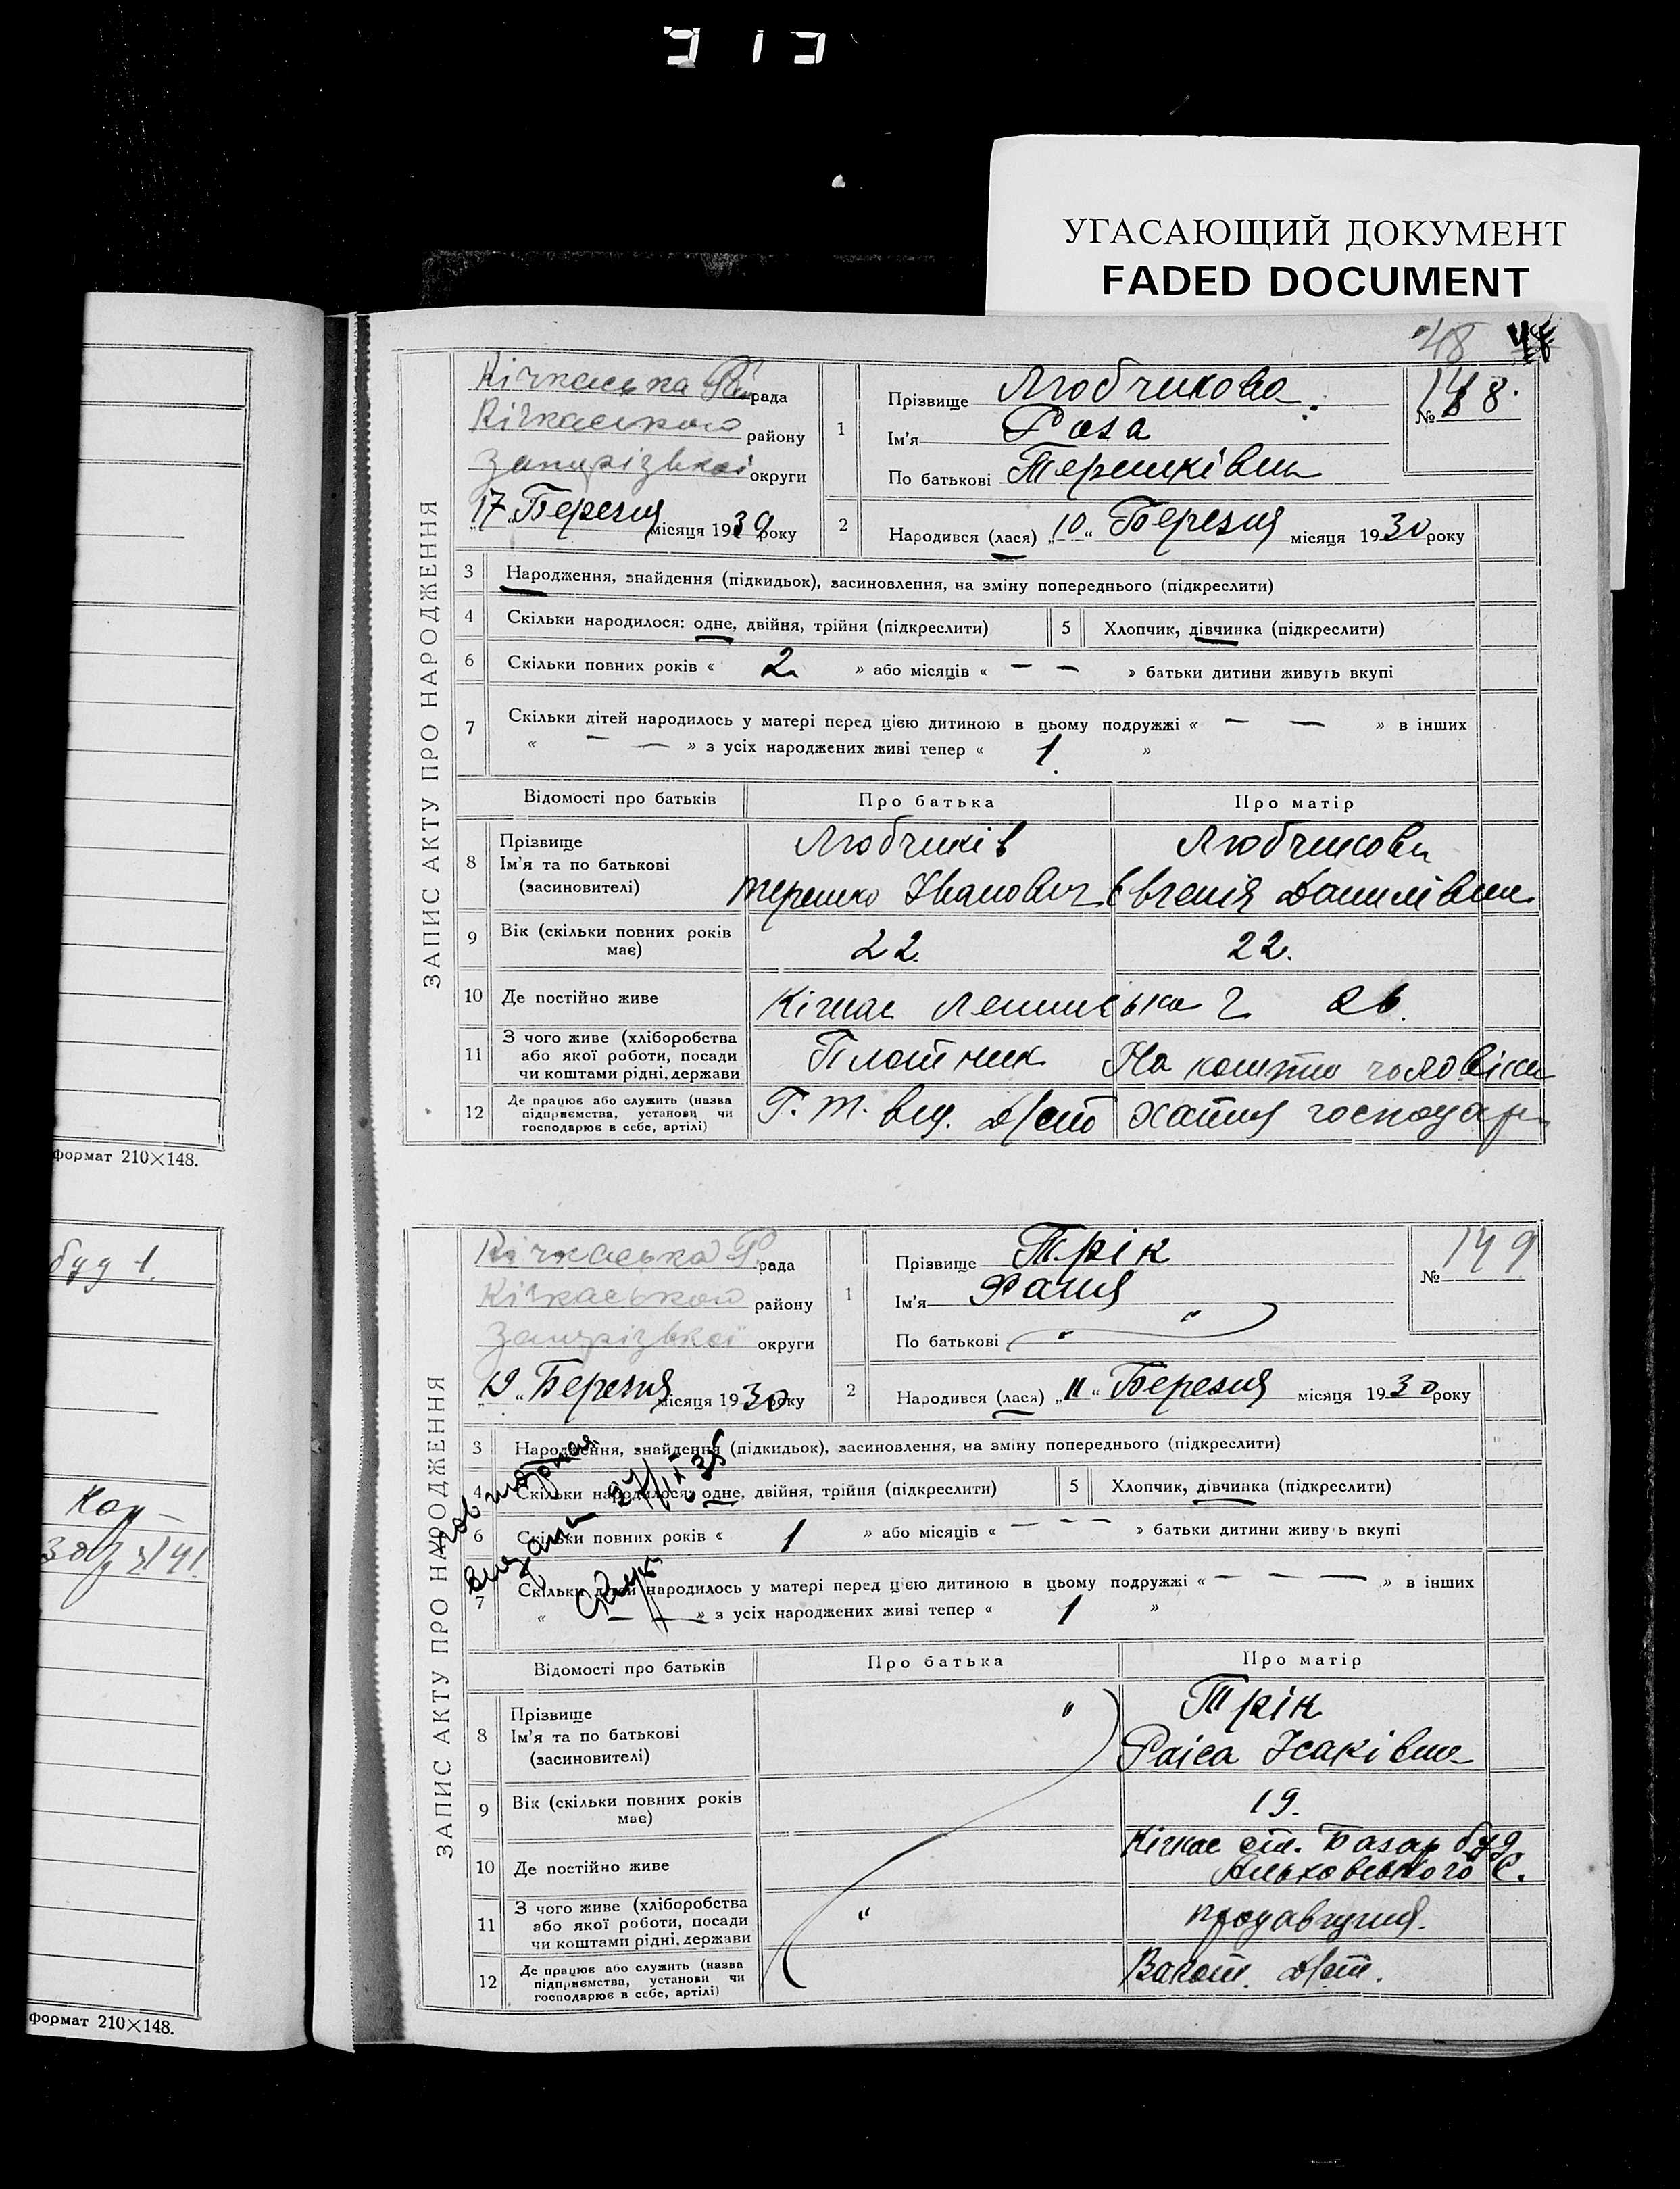 313
УГАСАЮЩИЙ ДОКУМЕНТ
FADED DOCUMENT
48
формат 210×148.
буд 1.
формат 210×148.
ЗАПИС АКТУ ПРО НАРОДЖЕННЯ
Кічкаська рада
Кічкаського району
Запорізької округи
„17„ Березня місяця 1930 року
1
Прізвище Любчикова
Ім'я Роза
По батькові Терешківна
№ 148.
2
Народився (лася) „10“ Березня місяця 1930 року
3 Народження, знайдення (підкидьок), засиновлення, на зміну попереднього (підкреслити)
4 Скільки народилося: одне, двійня, трійня (підкреслити) 5 Хлопчик, дівчинка (підкреслити)
6 Скільки повних років « 2 » або місяців « — — » батьки дитини живуть вкупі
7 Скільки дітей народилось у матері перед цією дитиною в цьому подружжі « — — » в інших
« — — » з усіх народжених живі тепер « 1 »
Відомості про батьків Про батька Про матір
8 Прізвище Любчиків Любчикова
Ім'я та по батькові
(засновителі) Терешко Іванович Євгенія Данилівна
9 Вік (скільки повних років має) 22. 22.
10 Де постійно живе Кічкас Ленинська 2 26.
11 З чого живе (хліборобства
або якої роботи, посади Плотник На кошти чоловіка
чи коштами рідні, держави
12 Де працює або служить (назва
підприємства, установи чи Г. т. від. Д/ст хатня господар.
господарює в себе, артілі)
ЗАПИС АКТУ ПРО НАРОДЖЕННЯ
Кічкаська Р. рада
Кічкаського району
Запорізької округи
„19„ Березня місяця 1930 року
1
Прізвище Трік
Ім'я Фаня
По батькові „ „
№ 149
2
Народився (лася) „11“ Березня місяця 1930 року
3 Народження, знайдення (підкидьок), засиновлення, на зміну попереднього (підкреслити)
4 Скільки народилося: одне, двійня, трійня (підкреслити) 5 Хлопчик, дівчинка (підкреслити)
6 Скільки повних років « 1 » або місяців « — — — » батьки дитини живуть вкупі
7 Скільки дітей народилось у матері перед цією дитиною в цьому подружжі « — — — » в інших
« — — » з усіх народжених живі тепер « 1 »
Відомості про батьків Про батька Про матір
8 Прізвище „ Трік
Ім'я та по батькові Раіса Ісаківна
(засиновителі)
9 Вік (скільки повних років має) 19.
10 Де постійно живе Кічкас ст. Базар буд
11 З чого живе (хліборобства
або якої роботи, посади „ продавчиня.
чи коштами рідні, держави
12 Де працює або служить (назва
підприємства, установи чи Вакот. Д/ст.
господарює в себе, артілі)